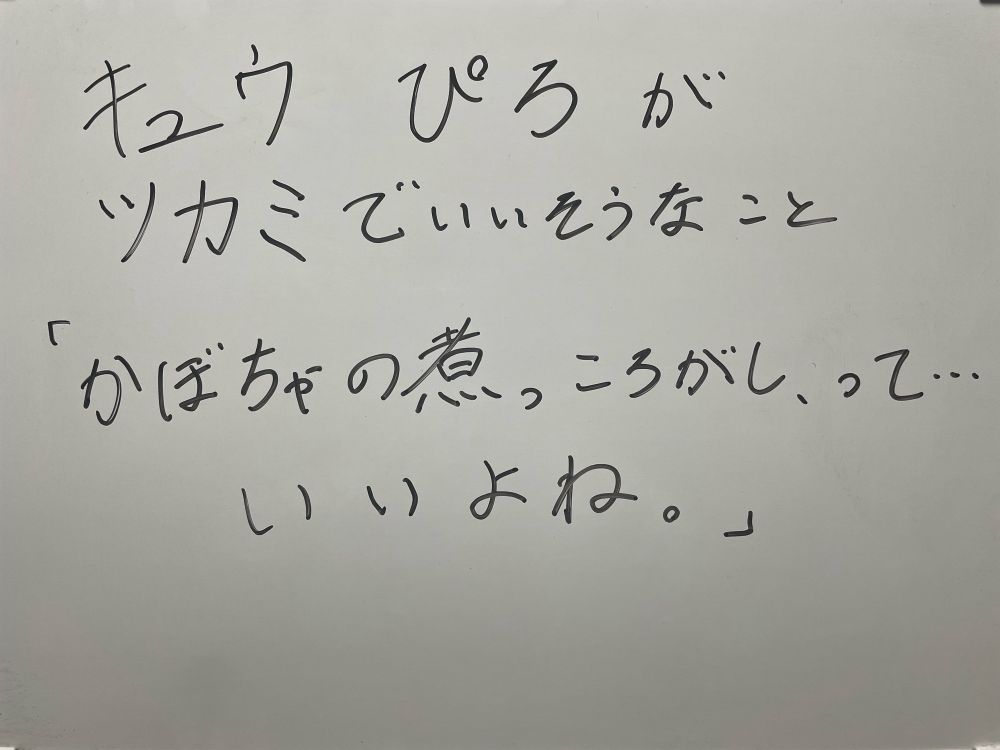 キュウ ぴろが
ツカミでいいそうなこと
「かぼちゃの煮っころがし、って…
いいよね。」